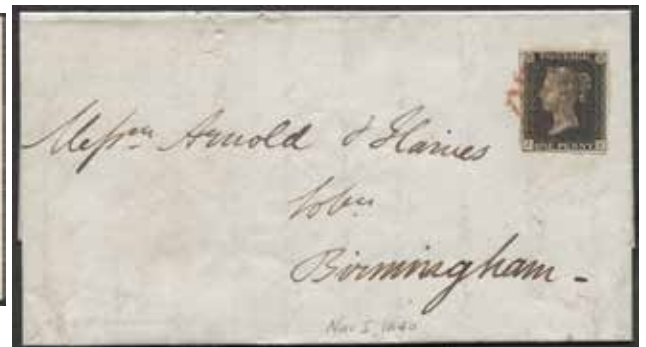 POSTAGE
ONE PENNY
Messrs Arnold & Haines
Birmingham -
Nov 5 1840